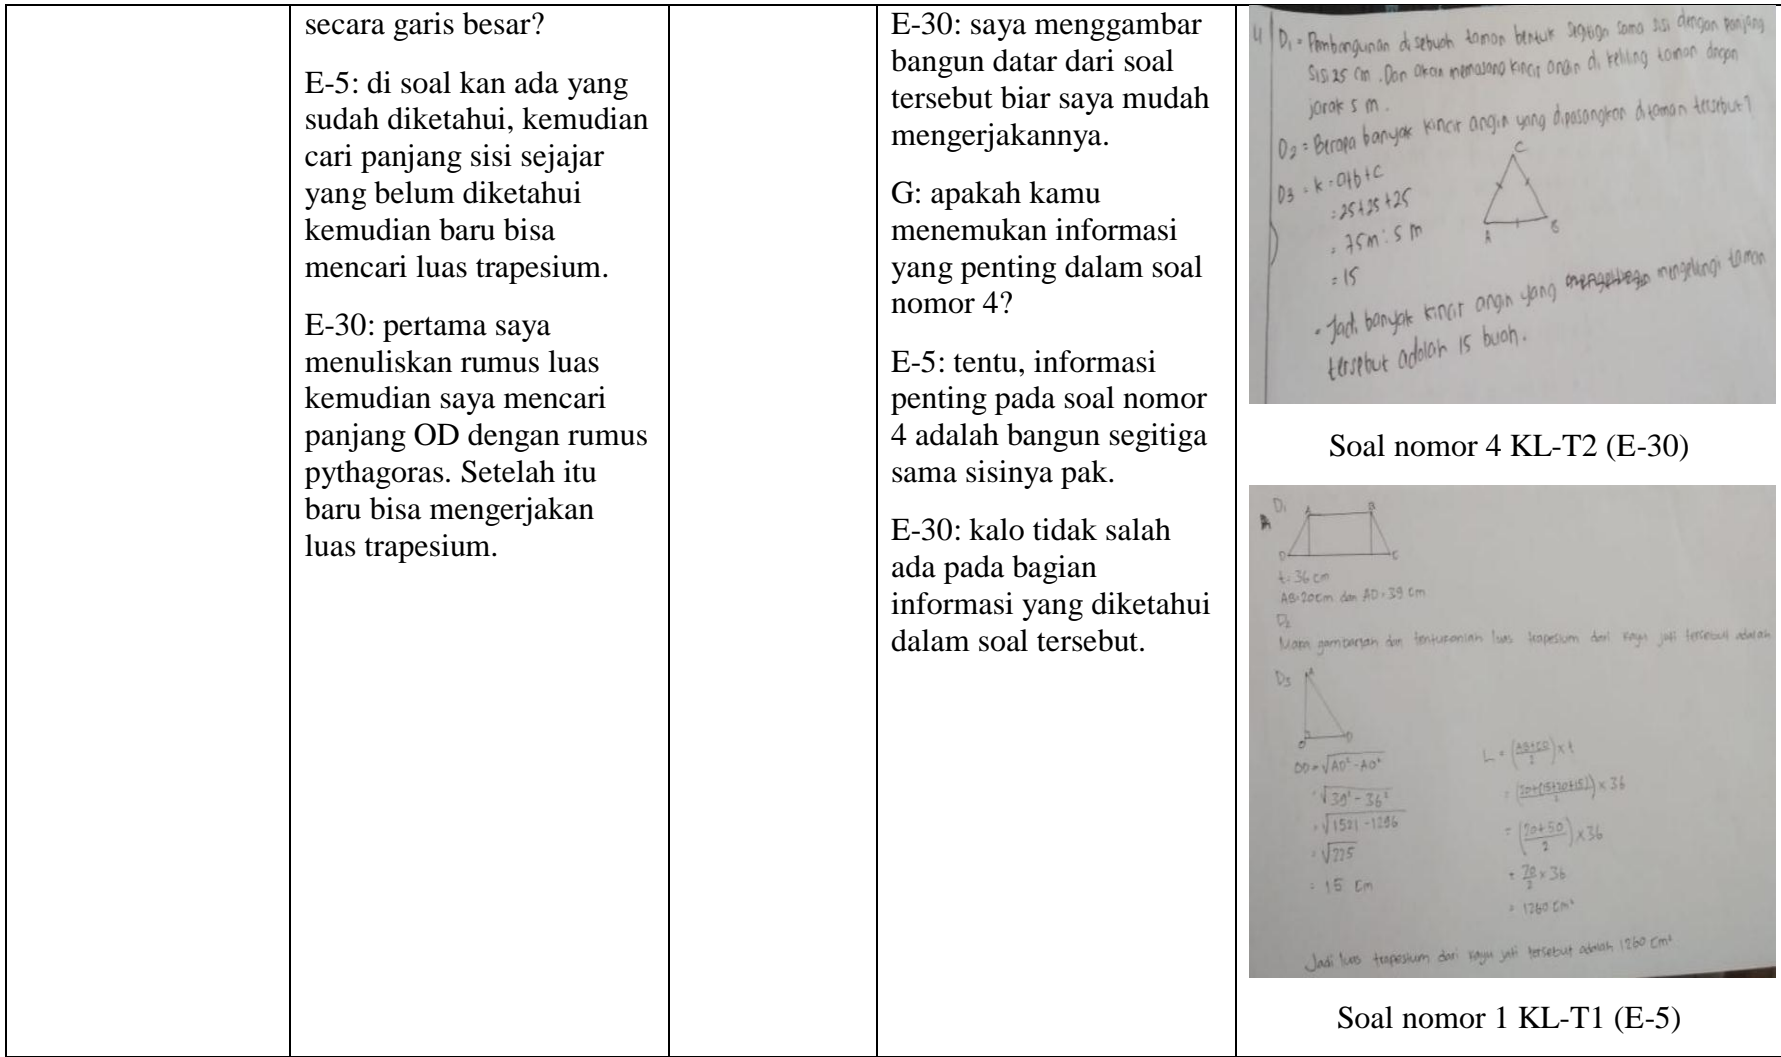 secara garis besar?
E-5: di soal kan ada yang
sudah diketahui, kemudian
cari panjang sisi sejajar
yang belum diketahui
kemudian baru bisa
mencari luas trapesium.
E-30: pertama saya
menuliskan rumus luas
kemudian saya mencari
panjang OD dengan rumus
pythagoras. Setelah itu
baru bisa mengerjakan
luas trapesium.
E-30: saya menggambar
bangun datar dari soal
tersebut biar saya mudah
mengerjakannya.
G: apakah kamu
menemukan informasi
yang penting dalam soal
nomor 4?
E-5: tentu, informasi
penting pada soal nomor
4 adalah bangun segitiga
sama sisinya pak.
E-30: kalo tidak salah
ada pada bagian
informasi yang diketahui
dalam soal tersebut.
4 D1 = Pembangunan disebuah taman bentuk segitiga sama sisi dengan panjang
sisi 25 cm. Dan akan memasang kincir angin di keliling taman dengan
jarak 5 m.
D2 = Berapa banyak kincir angin yang dipasangkan ditaman tersebut?
D3 = k = a+b+c
= 25+25+25
= 75m : 5 m
= 15
C
A B
• Jadi banyak kincir angin yang mengelilingi taman
tersebut adalah 15 buah.
Soal nomor 4 KL-T2 (E-30)
D1
A B
D C
t = 36 cm
AB = 20cm dan AD = 39 cm
D2
gambarlah dan tentukanlah luas trapesium dari kayu jati tersebut adalah
D3
A
O D
OD = √AD² - AO²
= √39² - 36²
= √1521 - 1296
= √225
= 15 cm
L = (AB+CD/2) x t
= (20+(15+20+15)/2) x 36
= (20+50/2) x 36
= 70/2 x 36
= 1260 cm²
Jadi luas trapesium dari kayu jati tersebut adalah 1260 cm²
Soal nomor 1 KL-T1 (E-5)